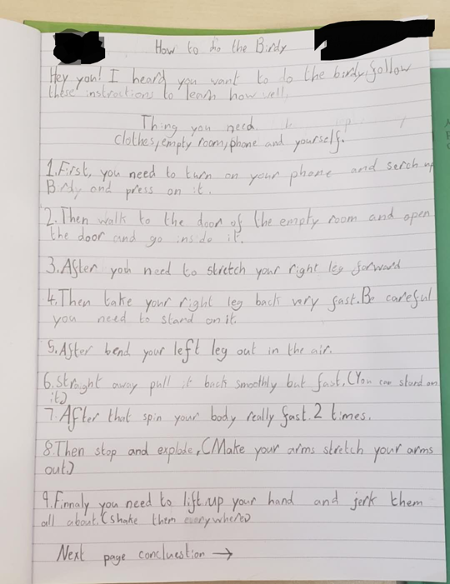 How to do the Birdy
Hey you! I heard you want to do the birdy, follow
these instroctions to learn how well.
Thing you need
clothes, empty room, phone and yourself.
1. First, you need to turn on your phone and serch up
Birdy and press on it.
2. Then walk to the door of the empty room and open
the door and go inside it.
3. After you need to stretch your right leg forward
4. Then take your right leg back very fast. Be careful
you need to stand on it.
5. After bend your left leg out in the air.
6. Straight away pull it back smoothly but fast. (You can stand on
it)
7. After that spin your body really fast 2 times.
8. Then stop and explode, (Make your arms stretch your arms
out)
9. Finnaly you need to lift up your hand and jerk them
all about. (shake them everywhere)
Next page concluestion →